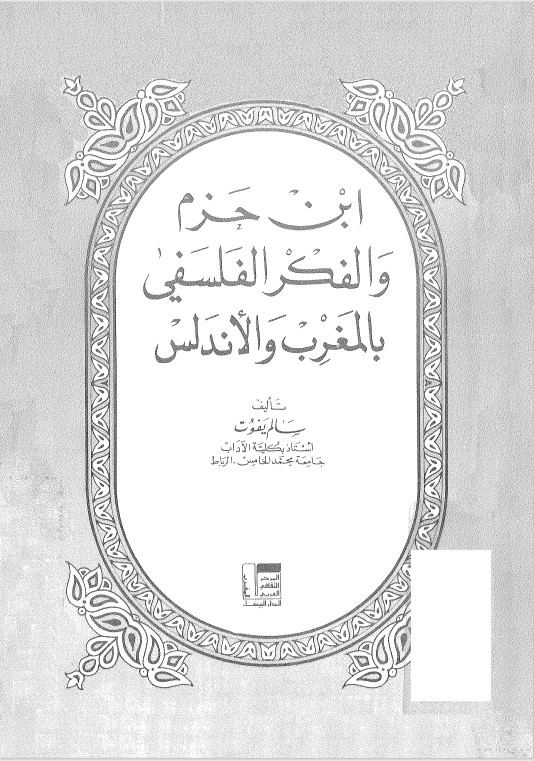 ابْن حَزم
وَالفكْر الفَلسَفي
بالمَغرِبْ وَالأندَلسْ
تَأليف
سَالم يَفوُت
اسْتاذ بكليَّة الآدابْ
جَامعَة محَمَّد الخامِسْ - الربَاط
المركز
الثقافي
العربي
الدار البيضاء